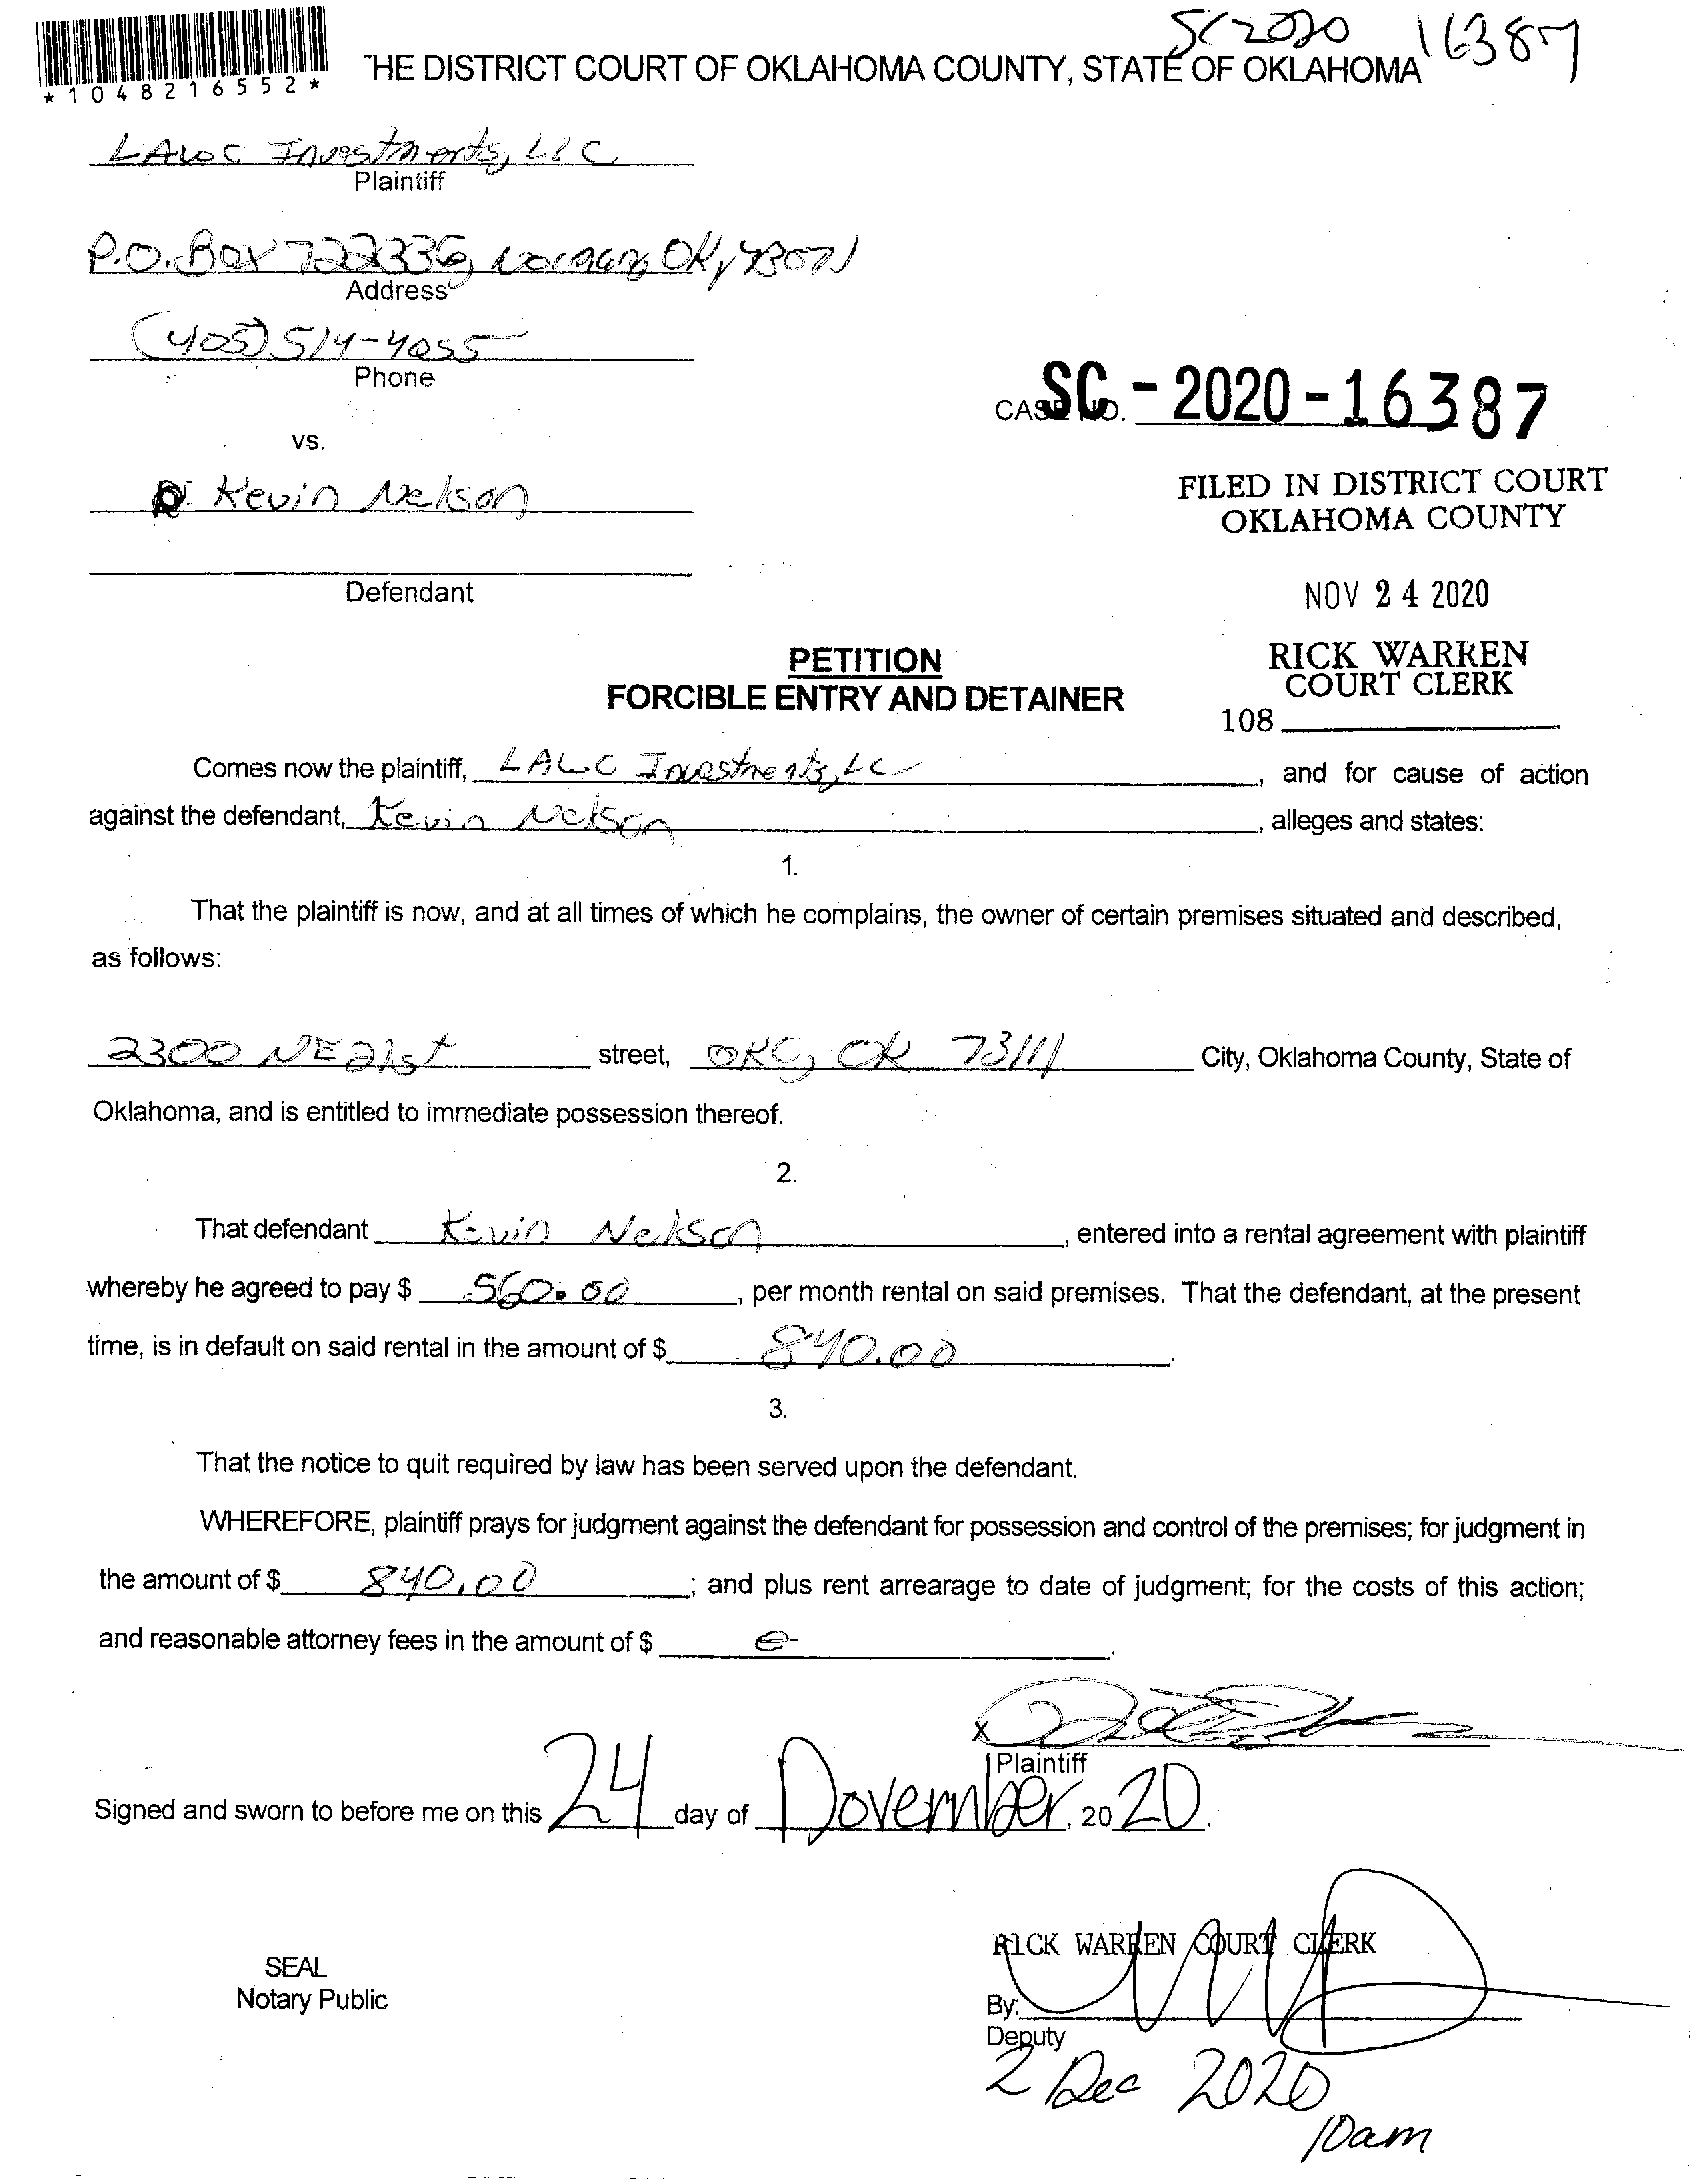 SC2020 16387
*1048216552*
THE DISTRICT COURT OF OKLAHOMA COUNTY, STATE OF OKLAHOMA
LAWC Investments, LLC
Plaintiff
P.O. Box 722336, Norman, OK, 73071
Address
(405) 514-4055
Phone
CASE NO. SC - 2020 - 16387
vs.
Kevin Nelson
FILED IN DISTRICT COURT
OKLAHOMA COUNTY
Defendant
NOV 24 2020
PETITION
RICK WARREN
FORCIBLE ENTRY AND DETAINER
COURT CLERK
108
Comes now the plaintiff, LAWC Investments, LC, and for cause of action
against the defendant, Kevin Nelson, alleges and states:
1.
That the plaintiff is now, and at all times of which he complains, the owner of certain premises situated and described,
as follows:
2300 NE 21st street, OKC, OK 73111 City, Oklahoma County, State of
Oklahoma, and is entitled to immediate possession thereof.
2.
That defendant Kevin Nelson, entered into a rental agreement with plaintiff
whereby he agreed to pay $ 560.00, per month rental on said premises. That the defendant, at the present
time, is in default on said rental in the amount of $ 840.00.
3.
That the notice to quit required by law has been served upon the defendant.
WHEREFORE, plaintiff prays for judgment against the defendant for possession and control of the premises; for judgment in
the amount of $ 840.00; and plus rent arrearage to date of judgment; for the costs of this action;
and reasonable attorney fees in the amount of $ .
x
Plaintiff
Signed and sworn to before me on this 24 day of November, 2020.
RICK WARREN COURT CLERK
SEAL
Notary Public
By:
Deputy
2 Dec 2020
10am